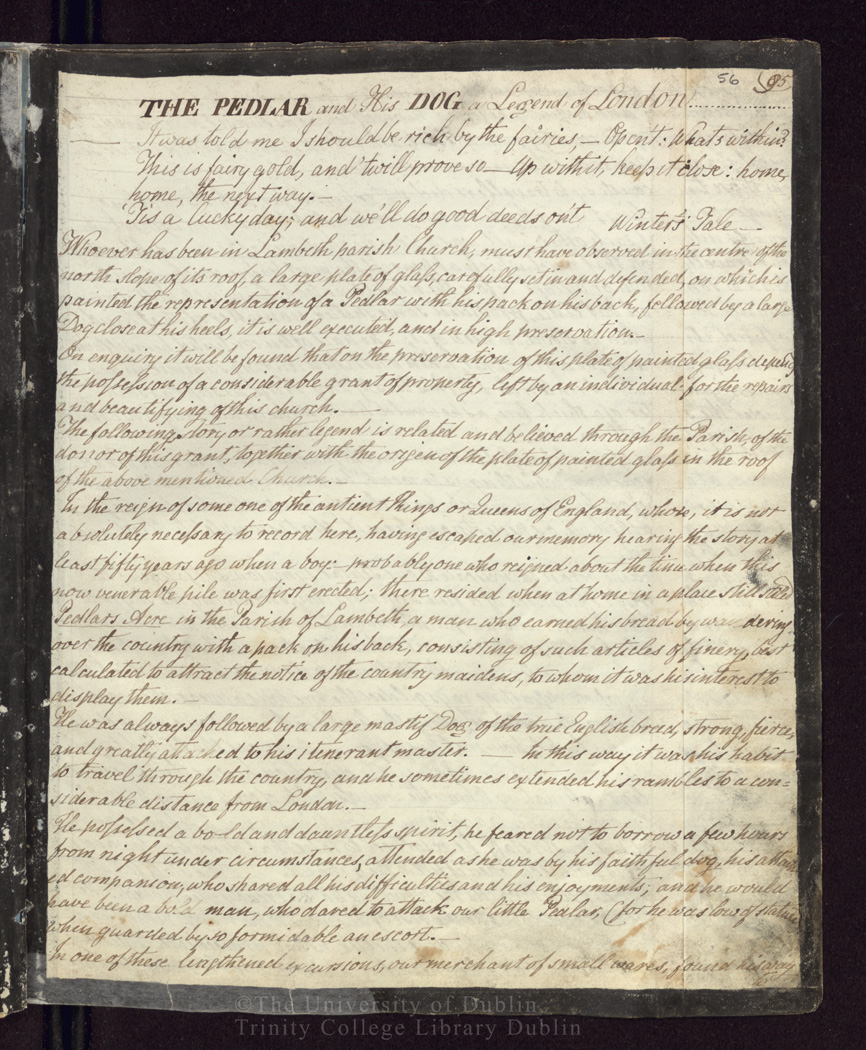 56 95
THE PEDLAR and His DOG a Legend of London
It was told me I should be rich by the fairies — Open't: What's within?
This is fairy gold, and 'twill prove so — Up with it, keep it close: home,
home, the next way. —
'Tis a lucky day; and we'll do good deeds on't Winter's Tale —
Whoever has been in Lambeth parish Church, must have observed in the centre of the
north slope of its roof, a large plate of glaſs, carefully set in and defended, on which is
painted the representation of a Pedlar with his pack on his back, followed by a large
Dog close at his heels, it is well executed, and in high preservation. —
On enquiry it will be found that on the preservation of this plate of painted glaſs depends
the poſseſsion of a considerable grant of property, left by an individual for the repairs
and beautifying of this church. —
The following story or rather legend is related and believed through the Parish, of the
donor of this grant, together with the origen of the plate of painted glaſs in the roof
of the above mentioned Church. —
In the reign of some one of the antient Kings or Queens of England, whose, it is not
absolutely neceſsary to record here, having escaped our memory hearing the story at
least fifty years ago when a boy: probably one who reigned about the time when this
now venerable pile was first erected; there resided when at home in a place still
Pedlars Acre in the Parish of Lambeth, a man who earned his bread by wandering
over the country with a pack on his back, consisting of such articles of finery, best
calculated to attract the notice of the country maidens, to whom it was his interest to
display them. —
He was always followed by a large mastif Dog of the true English breed, strong, fierce,
and greatly attached to his itenerant master. — In this way it was his habit
to travel through the country, and he sometimes extended his rambles to a con=
siderable distance from London. —
He poſseſsed a bold and dauntleſs spirit, he feared not to borrow a few hours
from night under circumstances, attended as he was by his faithful dog, his attach
ed companion, who shared all his difficulties and his enjoyments; and he would
have been a bold man, who dared to attack our little Pedlar, (for he was low of stature
when guarded by so formidable an escort. —
In one of these lengthened excursions, our merchant of small wares, found his way
©The University of Dublin,
Trinity College Library Dublin